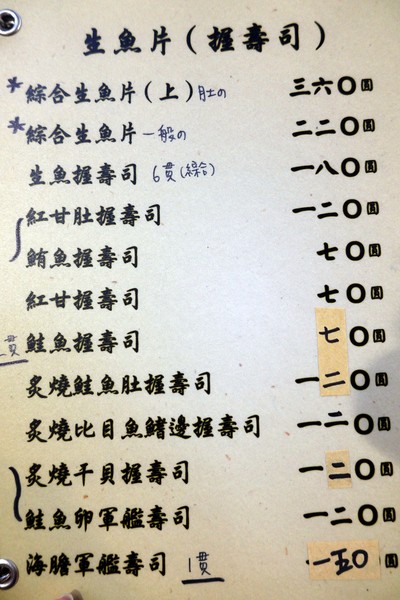 生魚片(握壽司)
*綜合生魚片(上)肚の 三六〇圓
*綜合生魚片 一般の 二二〇圓
生魚握壽司 6貫(綜合) 一八〇圓
紅甘肚握壽司 一二〇圓
鮪魚握壽司 七〇圓
紅甘握壽司 七〇圓
二貫 鮭魚握壽司 七〇圓
炙燒鮭魚肚握壽司 一二〇圓
炙燒比目魚鰭邊握壽司 一二〇圓
炙燒干貝握壽司 一二〇圓
鮭魚卵軍艦壽司 一二〇圓
海膽軍艦壽司 1貫 一五〇圓